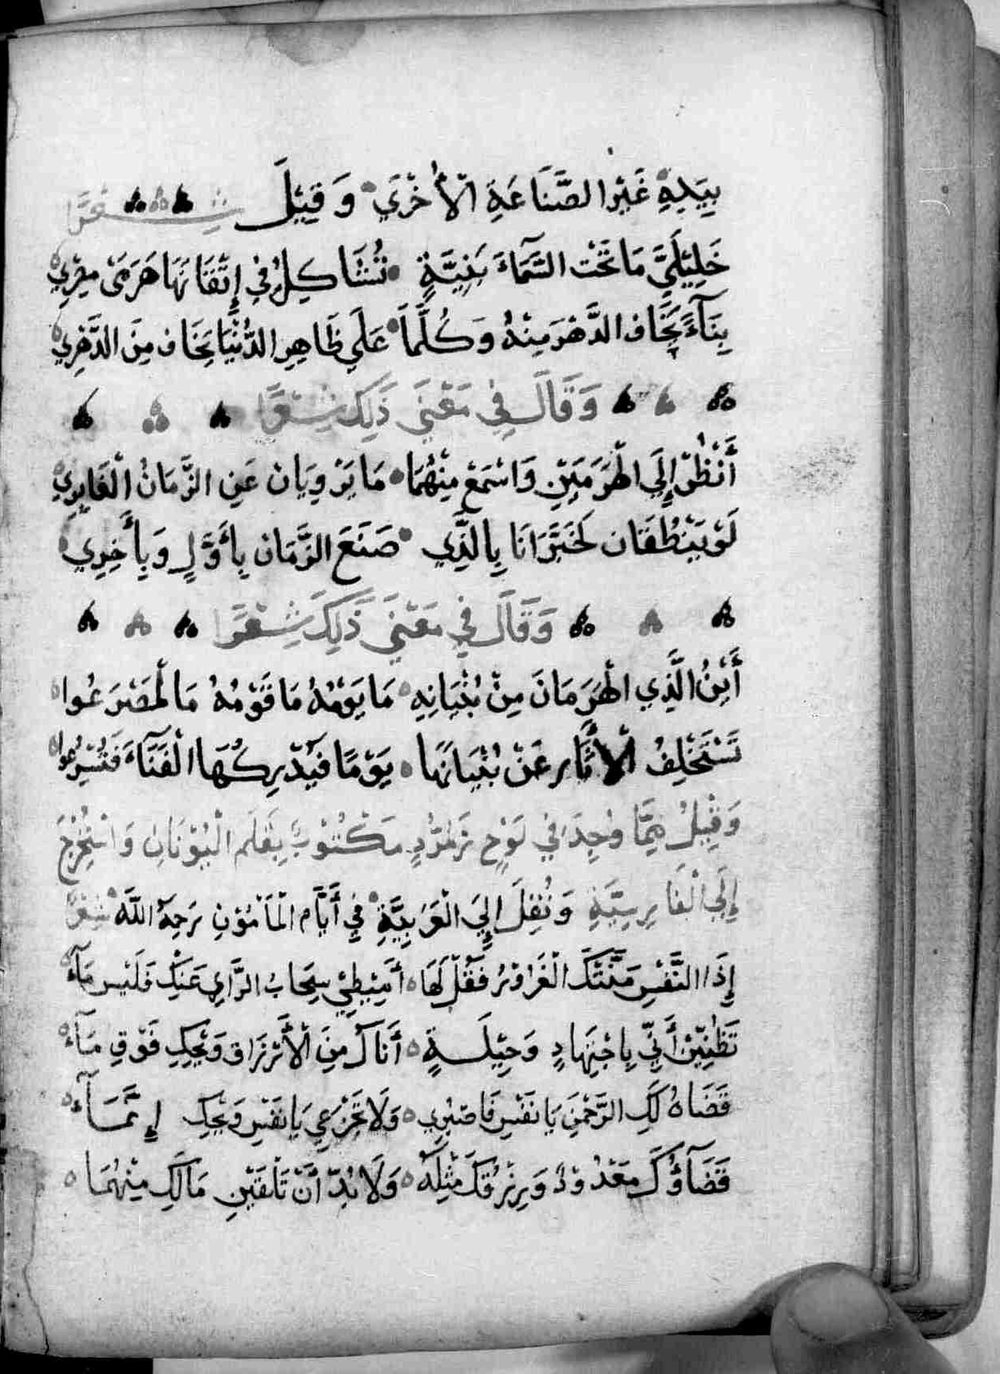 بِيَدِهِ غَيْرَ الصَّنَاعَةِ الْأُخْرَي وَقِيْلَ شِعْرًا
خَلِيْلَيَّ مَا تَحْتَ السَّمَاءَ بَنِيَّةٍ تُشَاكِلُ فِي إِتْقَانَهَا هَرَمَيْ مِصْرِي
بِنَآءً يَخَاف الدَّهْرَ مِنْهُ وَكُلَّمَا عَلَي ظَاهِرِ الدُّنْيَا يَخَاف مِنَ الدَّهْرِي
وَقَالَ فِي مَعْنَي ذَلِكَ شِعْرًا
أَنْظُرْ إِلَي الْهَرَمَيْنِ وَاسْمَعْ مِنْهُمَا مَا يَرْوِيَانْ عَنِ الزَّمَانْ الْغَابِرِي
لَوْ يَنْطُقَان لَخَبَّرَانَا بِالَّذِي صَنَعَ الزَّمَانْ بِأَوَّلٍ وَبِأَخِرِي
وَقَالَ فِي مَعْنَي ذَلِكَ شِعْرًا
أَيْنُ الَّذِي الْهَرَمَانَ مِنْ بُنْيَانِهِ مَا يَوْمُهُ مَا قَوْمُهُ مَا لْمَصْرَعُوا
تَسْتَخْلِفُ الْأَثَار عَنْ بُنْيَانَهَا يَوْمًا فَيُدْرِكُهَا الْفَنَآءَ
وَقِيْلَ مِمَّا وُجِدَ فِي لَوْحٍ زَمُرُّدٍ مَكْتُوْبٌ بِقَلَمِ الْيُوْنَانِ وَاسْتُخْرِجَ
إِلَي الْفَارِسِيَّةِ وَنُقِلَ إِلَي الْعَرَبِيَّةِ فِي أَيَّامِ الْمَأمُوْنِ رَحِمَهُ اللَّهَ شِعْرًا
إِذَا النَّفْسَ مَنَّتْكَ الْغَرُوْرُ فَقُلْ لَهَا أَمِيْطِيْ سِحَابُ الرَّاي عَنْكِ فَلَيْسَ مَآءُ
تَظُنِّيْنَ أَنِّي بِاجْتِهَادٍ وَحِيْلَةٍ أَنَالُ مِنَ الْأَرْزَاق وَيْحِكِ فَوْقِ مَآءُ
قَضَاهُ لَكِ الرَّحْمَنِ يَا نَفْسَ فَاصْبِرِي وَلَا تَجْزَعِي يَا نَفْسَ وَيْحِكِ إِنَّمَآءُ
قَضَآؤُكَ مَعْدُوْدٌ وَرِزْقُكَ مِثْلِهُ وَلَا بُدَّ أَنْ تَلْقَيْنِ مَالَكِ مِنْهُمَا